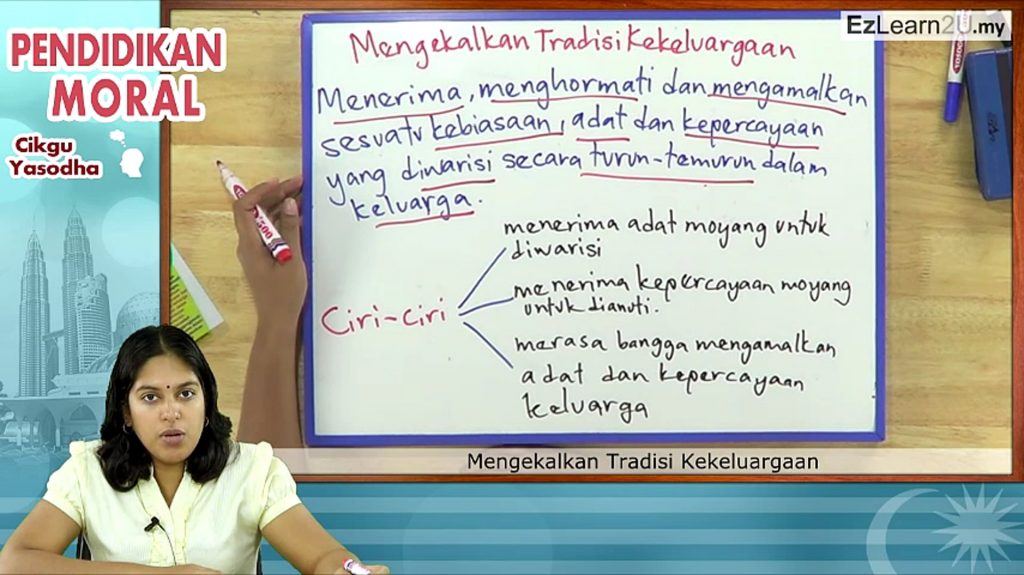 PENDIDIKAN
MORAL
Cikgu
Yasodha
EzLearn2U.my
Mengekalkan Tradisi Kekeluargaan
Menerima, menghormati dan mengamalkan
sesuatu kebiasaan, adat dan kepercayaan
yang diwarisi secara turun-temurun dalam
keluarga.
Ciri-ciri
menerima adat moyang untuk
diwarisi
menerima kepercayaan moyang
untuk dianuti.
merasa bangga mengamalkan
adat dan kepercayaan
keluarga
Mengekalkan Tradisi Kekeluargaan